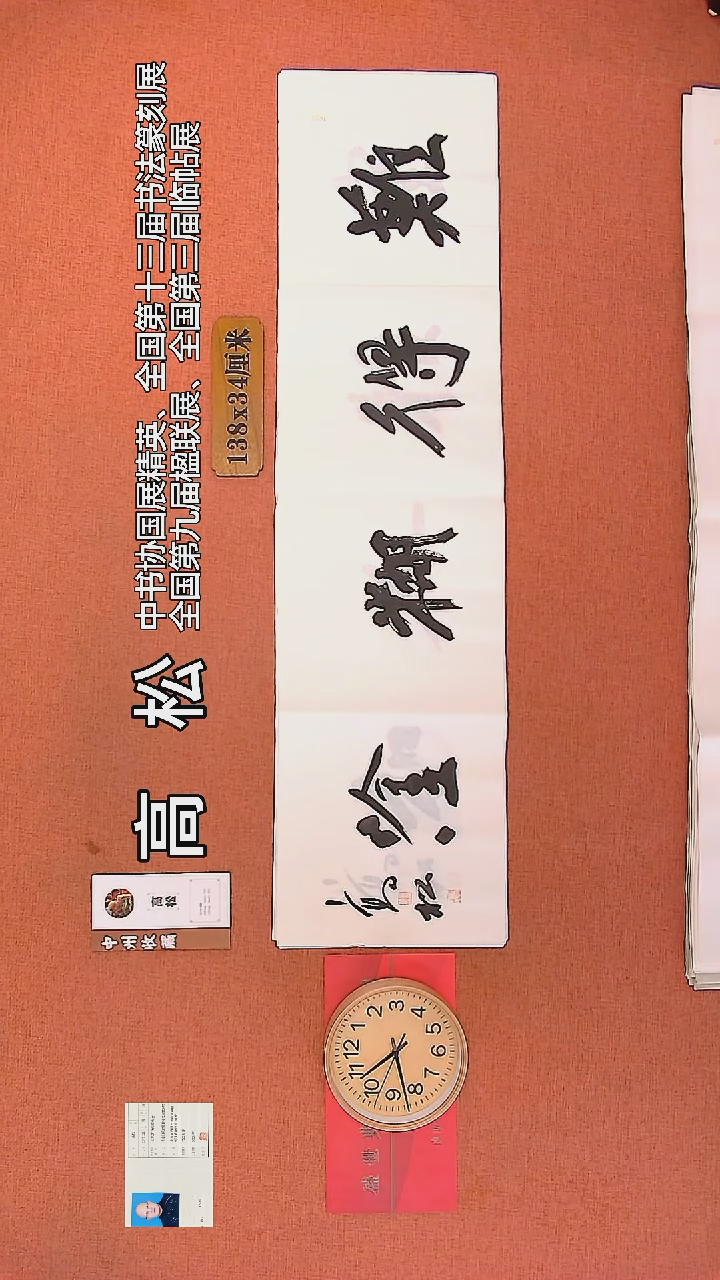 中书协国展精英、全国第十三届书法篆刻展
全国第九届楹联展、全国第三届临帖展
高 松
138x34厘米
難得糊塗
高松
高松
中州收藏
12
1
2
3
4
5
6
7
8
9
10
11